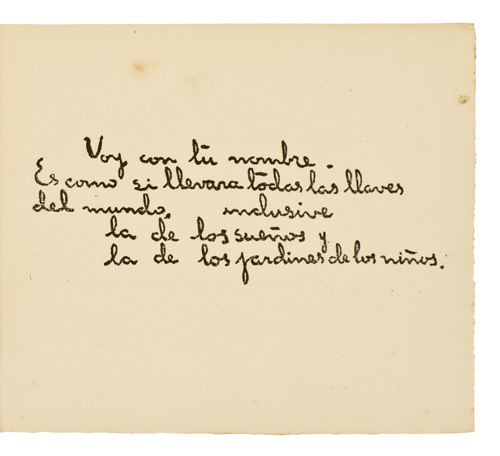 Voy con tú nombre.
Es como si llevara todas las llaves
del mundo, inclusive
la de los sueños y
la de los jardines de los niños.